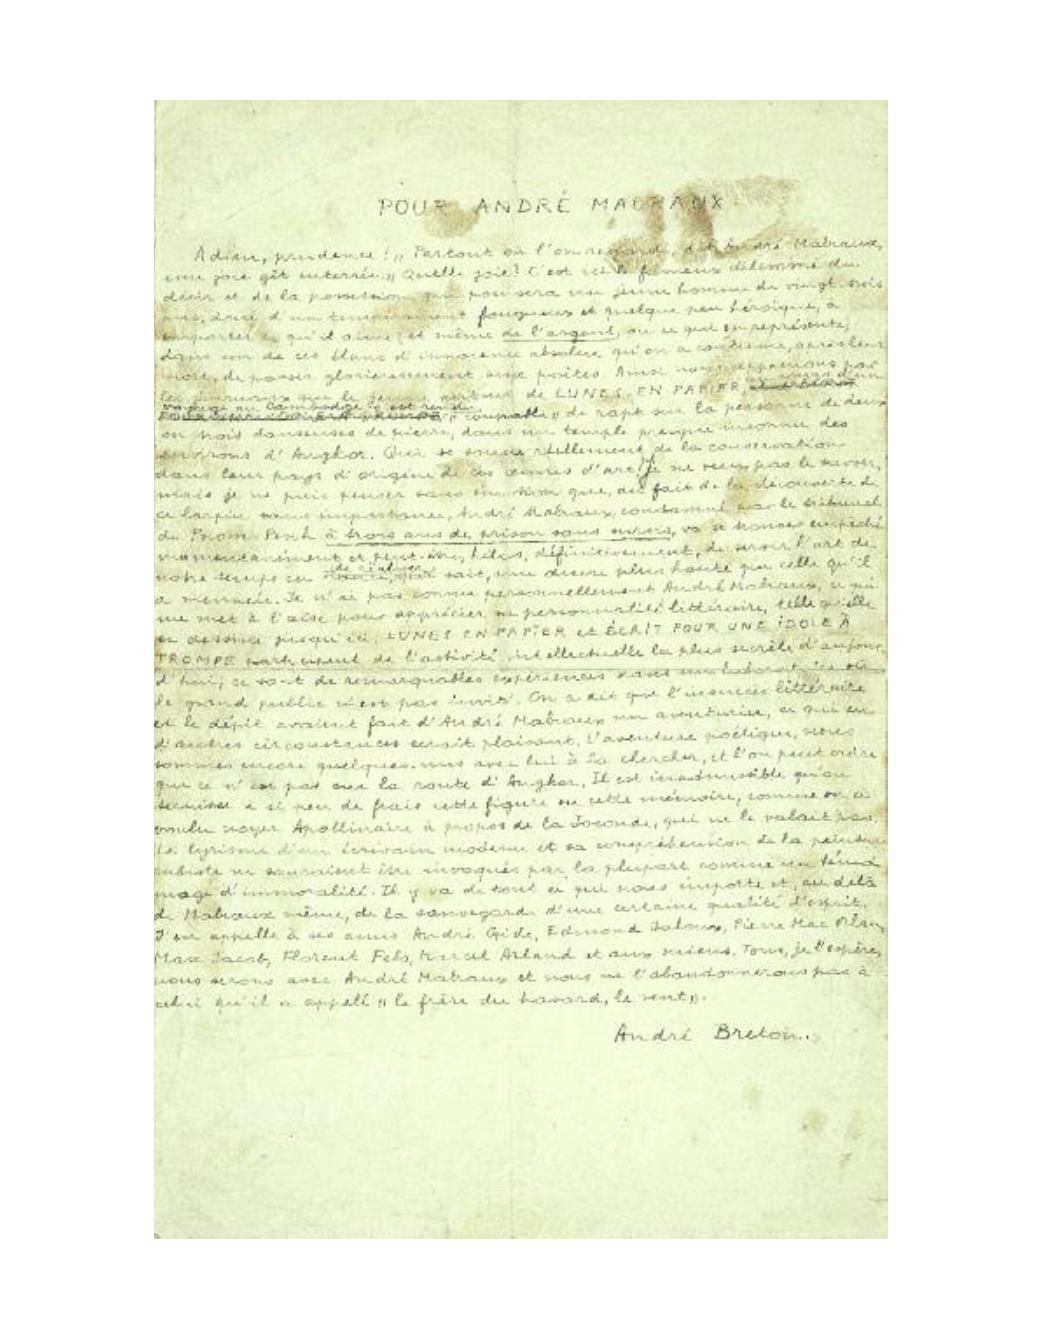 POUR ANDRÉ MALRAUX
Adieu, prudence ! „ Partout où l'on regarde, dit André Malraux,
une joie gît enterrée. „ Quelle joie ? C'est ici le fameux dilemme du
désir et de la possession qui poussera un jeune homme de vingt-trois
ans, doué d'un tempérament fougueux et quelque peu héroïque, à
emporter ce qu'il aime, et même de l'argent, ou ce qui en représente,
dans son de ces élans d'innocence absolue qu'on a coutume, après leur
mort, de passer glorieusement aux poètes. Ainsi nous apprenons par
les journaux que le jeune auteur de LUNES EN PAPIER, au cours d'un
voyage au Cambodge, s'est rendu „ coupable „ de rapt sur la personne de deux
ou trois danseuses de pierre, dans un temple presque inconnu des
environs d'Angkor. Qui se soucie réellement de la conservation
dans leur pays d'origine de ces œuvres d'art, je ne veux pas le savoir,
mais je ne puis penser sans émotion que, du fait de la découverte de
ce larcin sans importance, André Malraux, condamné par le tribunal
de Pnom-Penh à trois ans de prison sans sursis, va se trouver empêché
momentanément et peut-être, hélas, définitivement, de servir l'art de
notre temps en de sait, une œuvre plus haute que celle qu'il
a menacée. Je n'ai pas connu personnellement André Malraux, ce qui
me met à l'aise pour apprécier sa personnalité littéraire, telle qu'elle
se dessina jusqu'ici. LUNES EN PAPIER et ÉCRIT POUR UNE IDOLE À
TROMPE participent de l'activité intellectuelle la plus secrète d'aujour-
d'hui, ce sont de remarquables expériences dans un laboratoire où
le grand public n'est pas invité. On a dit que l'insuccès littéraire
et le dépit avaient fait d'André Malraux un aventurier, ce qui en
d'autres circonstances serait plaisant. L'aventure poétique, nous
sommes encore quelques-uns avec lui à la chercher, et l'on peut croire
que ce n'est pas sur la route d'Angkor. Il est inadmissible qu'on
à si peu de frais cette figure ou cette mémoire, comme on a
voulu noyer Apollinaire à propos de la Joconde, qui ne le valait pas.
Le lyrisme d'un écrivain moderne et sa compréhension de la peinture
cubiste ne sauraient être invoqués par la plupart comme un témoi-
gnage d'immoralité. Il y va de tout ce qui nous importe et, au delà
de Malraux même, de la sauvegarde d'une certaine qualité d'esprit.
J'en appelle à ses amis André Gide, Edmond Jaloux, Pierre Mac Orlan,
Max Jacob, Florent Fels, Marcel Arland et aux miens. Tous, je l'espère,
nous serons avec André Malraux et nous ne l'abandonnerons pas à
celui qu'il a appelé „ le frère du hasard, le vent „.
André Breton.